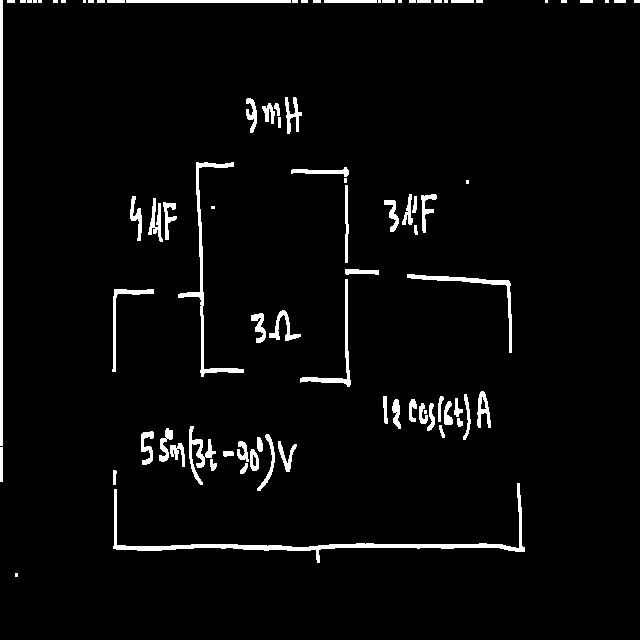 9mH
4μF
3μF
3Ω
12 cos(6t) A
5 sin(3t - 90°) V